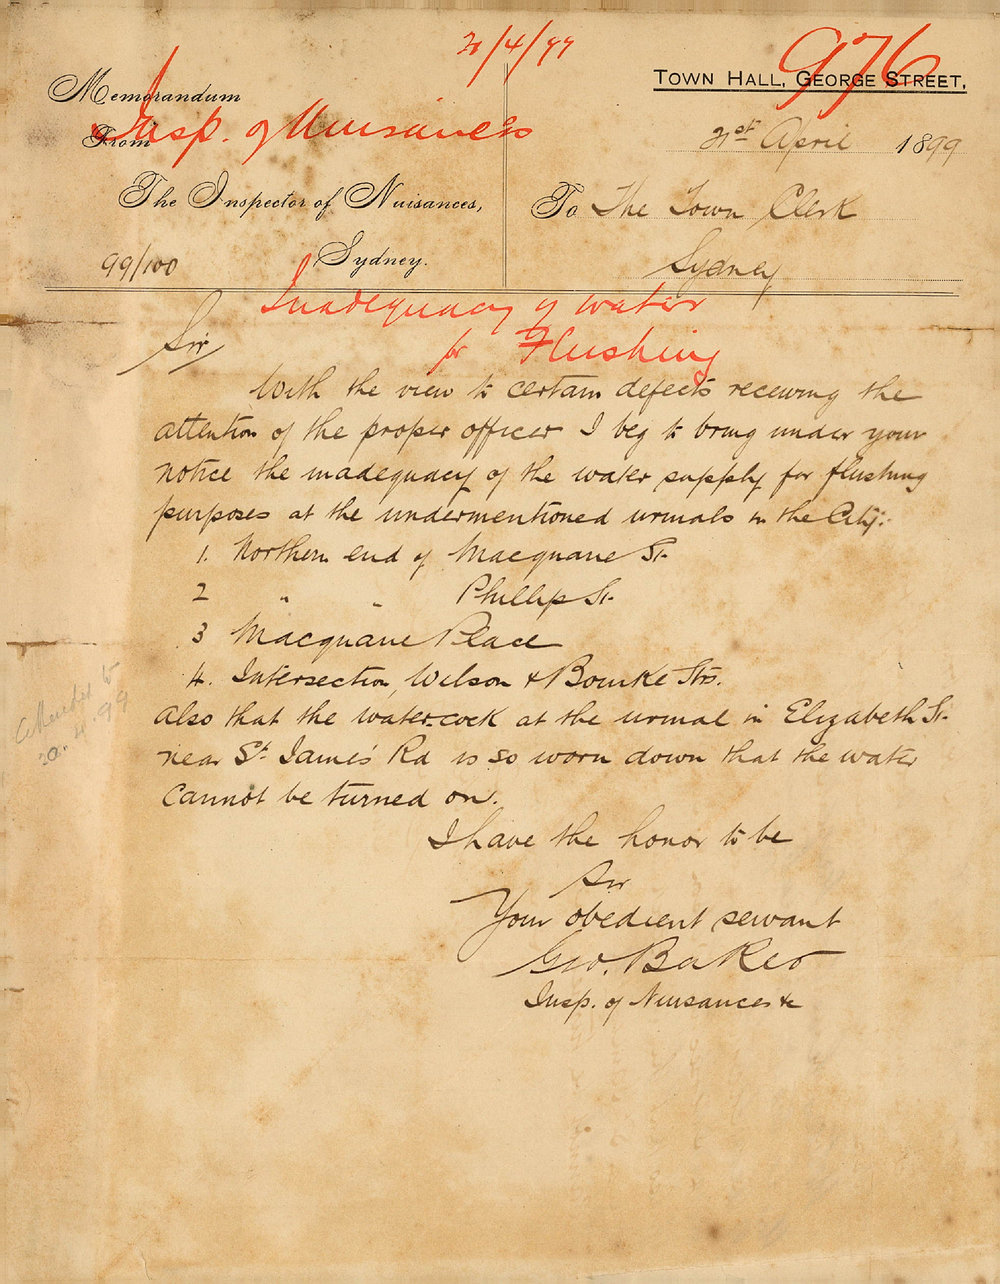 21/4/99
976
TOWN HALL, GEORGE STREET,
Memorandum
From
Insp. of Nuisances
21st April 1899
The Inspector of Nuisances,
To The Town Clerk
99/100
Sydney.
Sydney
Inadequacy of water
for Flushing
Sir
With the view to certain defects receiving the
attention of the proper officer I beg to bring under your
notice the inadequacy of the water supply for flushing
purposes at the undermentioned urinals in the City:
1. Northern end of Macquarie St.
2 " " Phillip St.
3 Macquarie Place
4. Intersection, Wilson & Bourke Sts.
Also that the water-cock at the urinal in Elizabeth St.
near St. James' Rd is so worn down that the water
cannot be turned on.
I have the honor to be
Sir
Your obedient servant
Geo. Baker
Insp. of Nuisances &c
Attended to
20.4.99